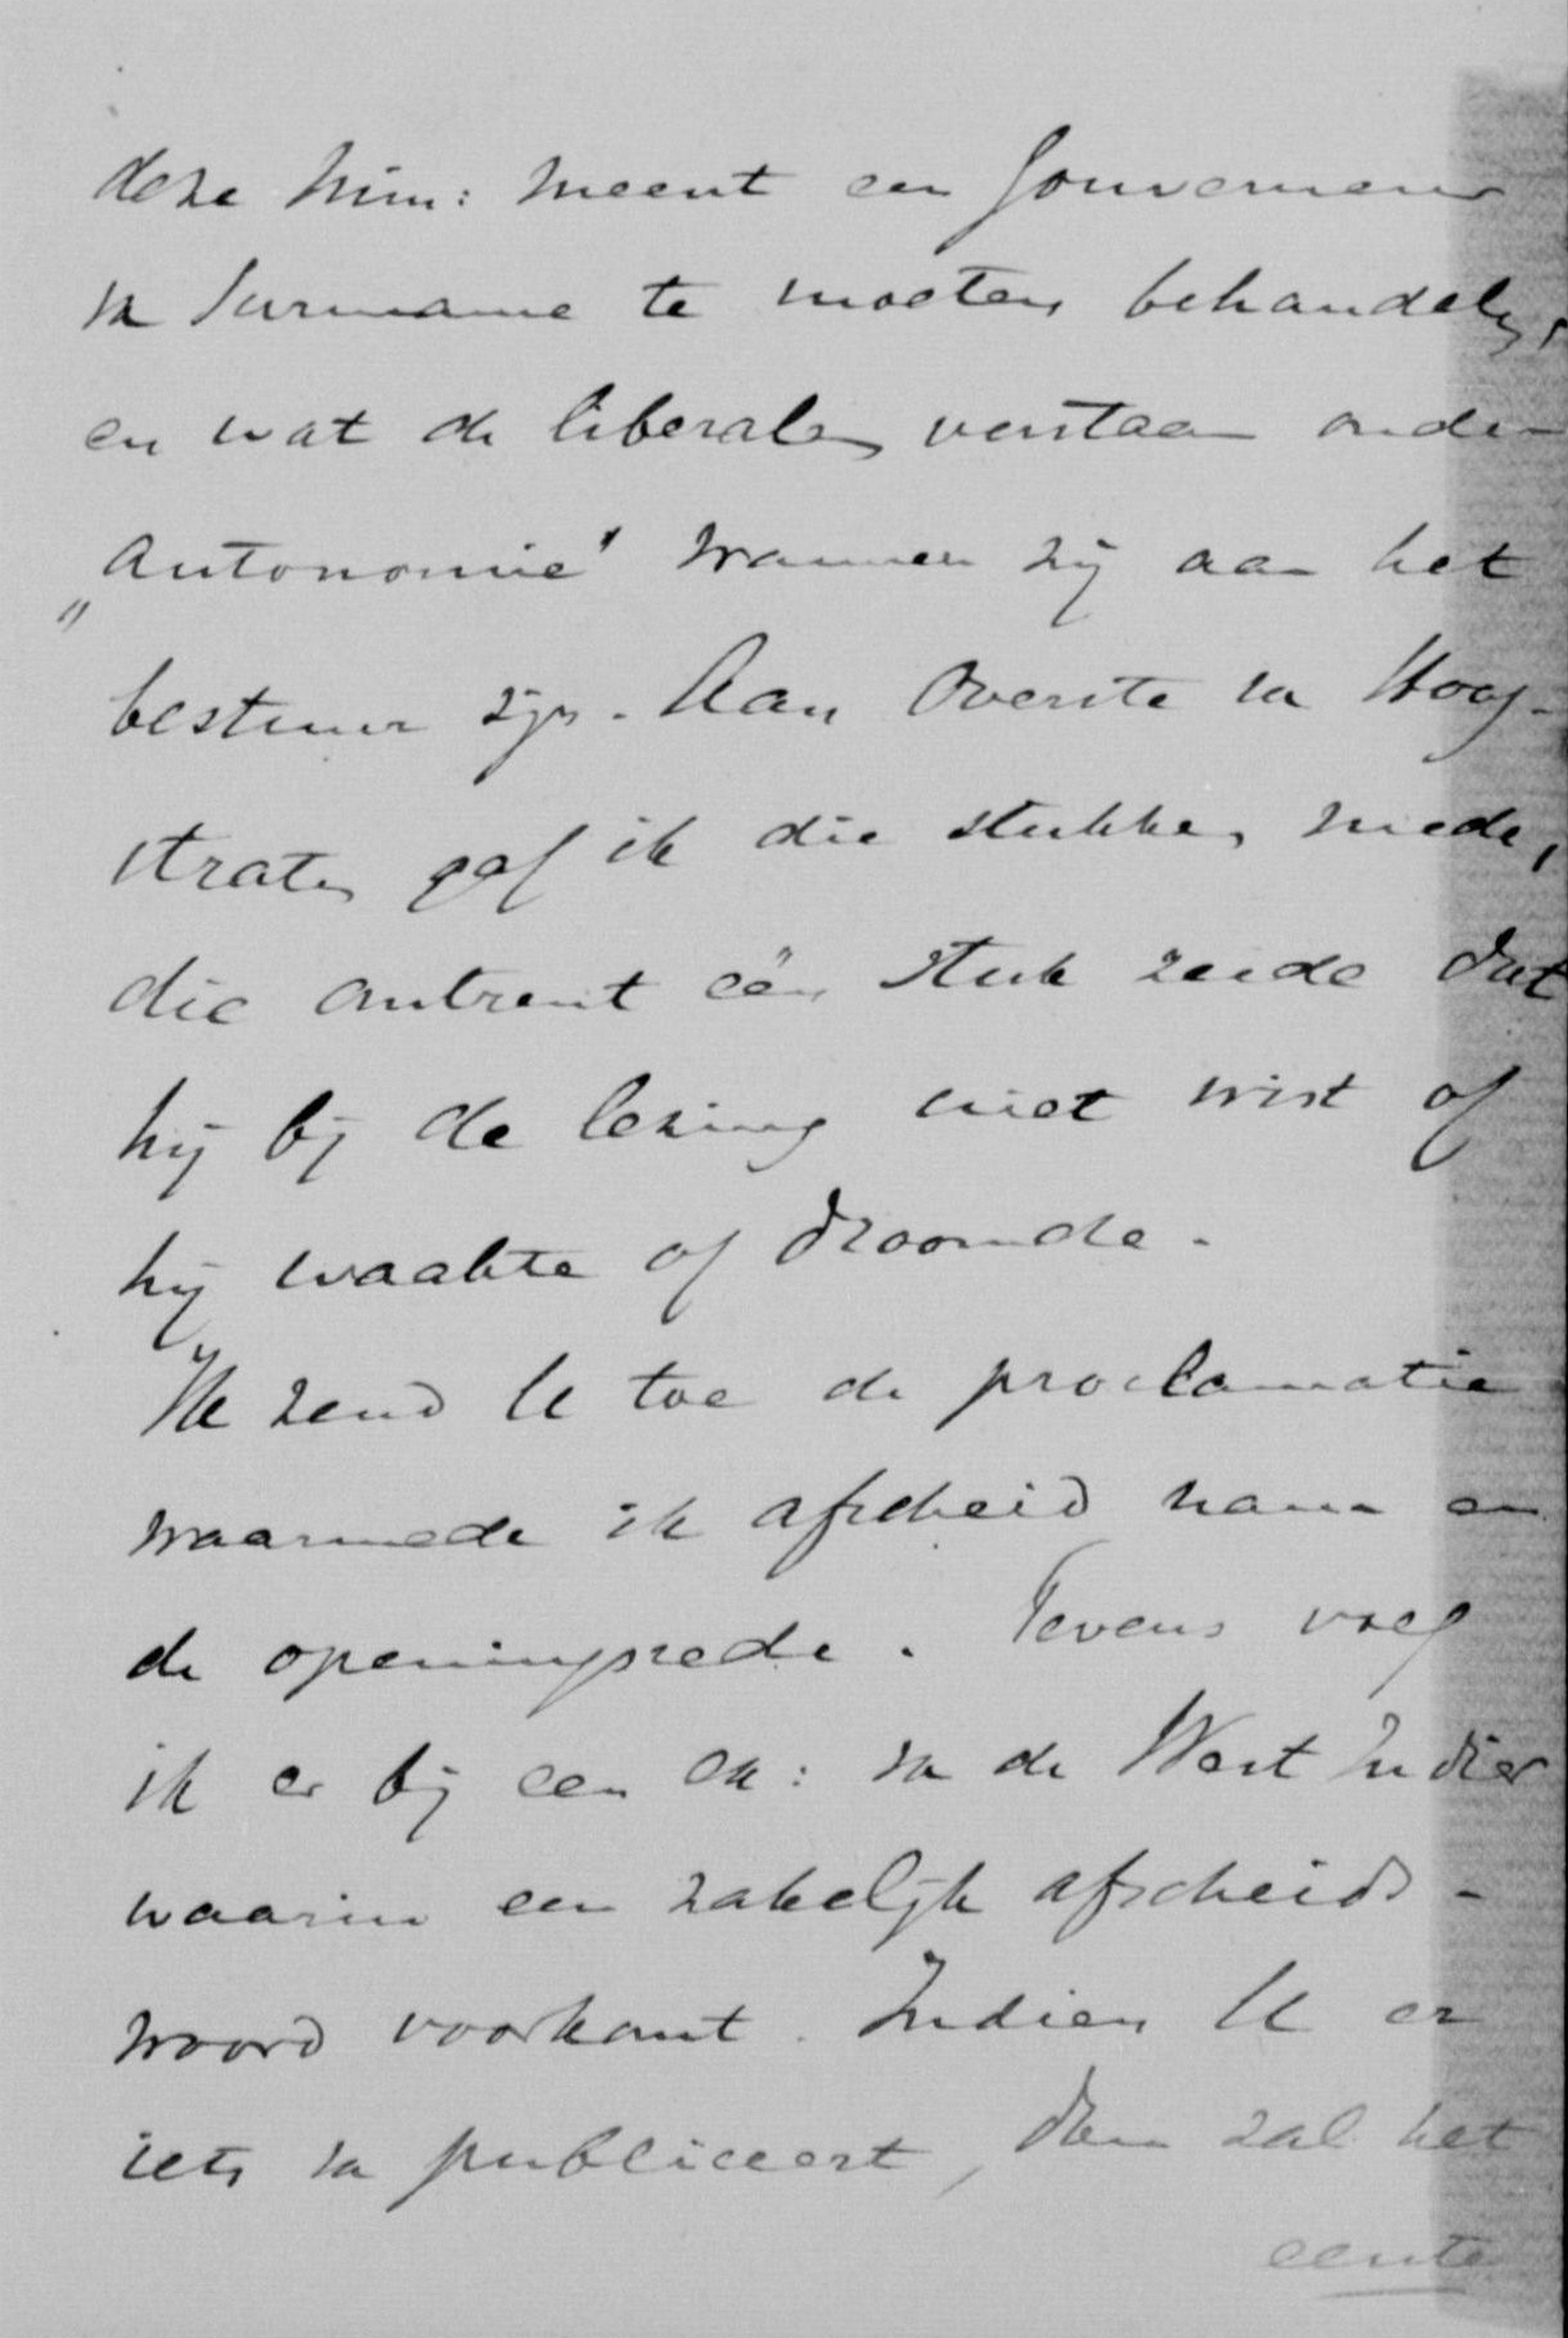 deze Min: meent een Gouverneur
van Suriname te moeten behandelen,
en wat de liberalen verstaan onder
„Autonomie" wanneer zij aan het
bestuur zijn. Aan Overste van Hoog-
straten gaf ik die stukken mede,
die omtrent één stuk zeide dat
hij bij de lezing niet wist of
hij waakte of droomde.
Ik zend U toe de proclamatie
waarmede ik afscheid nam en
de openingsrede. Tevens voeg
ik er bij een ex: van de West Indier
waarin een zakelijk afscheids-
woord voorkomt. Indien U er
iets van publiceert, dan zal het
eerste